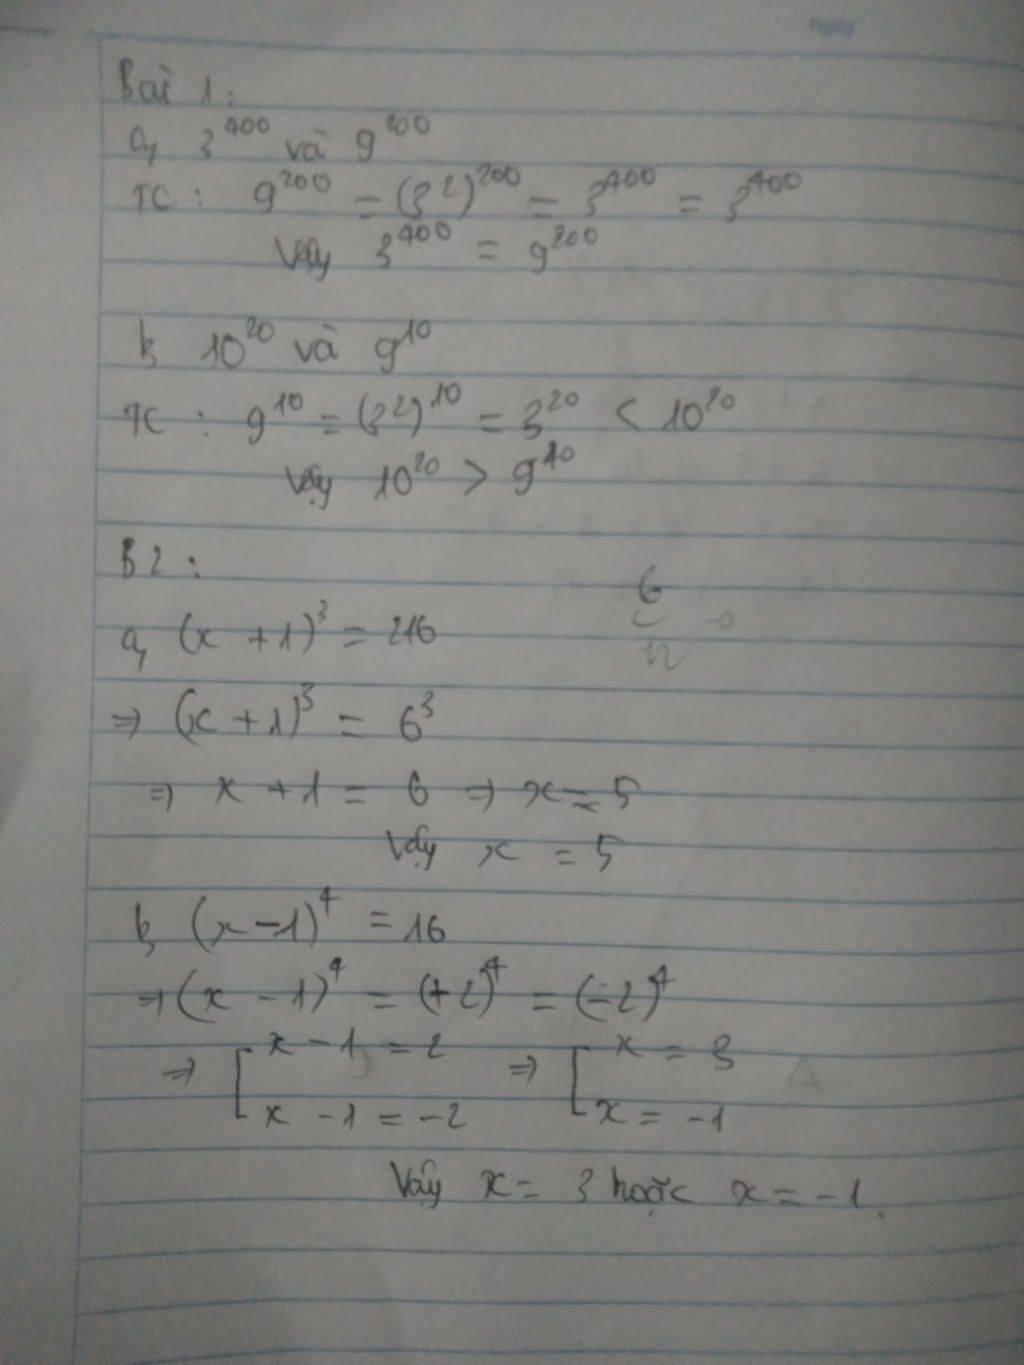 Bài 1:
a, 3^400 và 9^200
TC: 9^200 = (3^2)^200 = 3^400 = 3^400
Vậy 3^400 = 9^200
b, 10^20 và 9^10
TC: 9^10 = (3^2)^10 = 3^20 < 10^20
Vậy 10^20 > 9^10
B2:
a, (x + 1)^3 = 216
⇒ (x + 1)^3 = 6^3
⇒ x + 1 = 6 ⇒ x = 5
Vậy x = 5
b, (x - 1)^4 = 16
⇒ (x - 1)^4 = (+2)^4 = (-2)^4
⇒ [ x - 1 = 2 ⇒ [ x = 3
x - 1 = -2 x = -1
Vậy x = 3 hoặc x = -1.